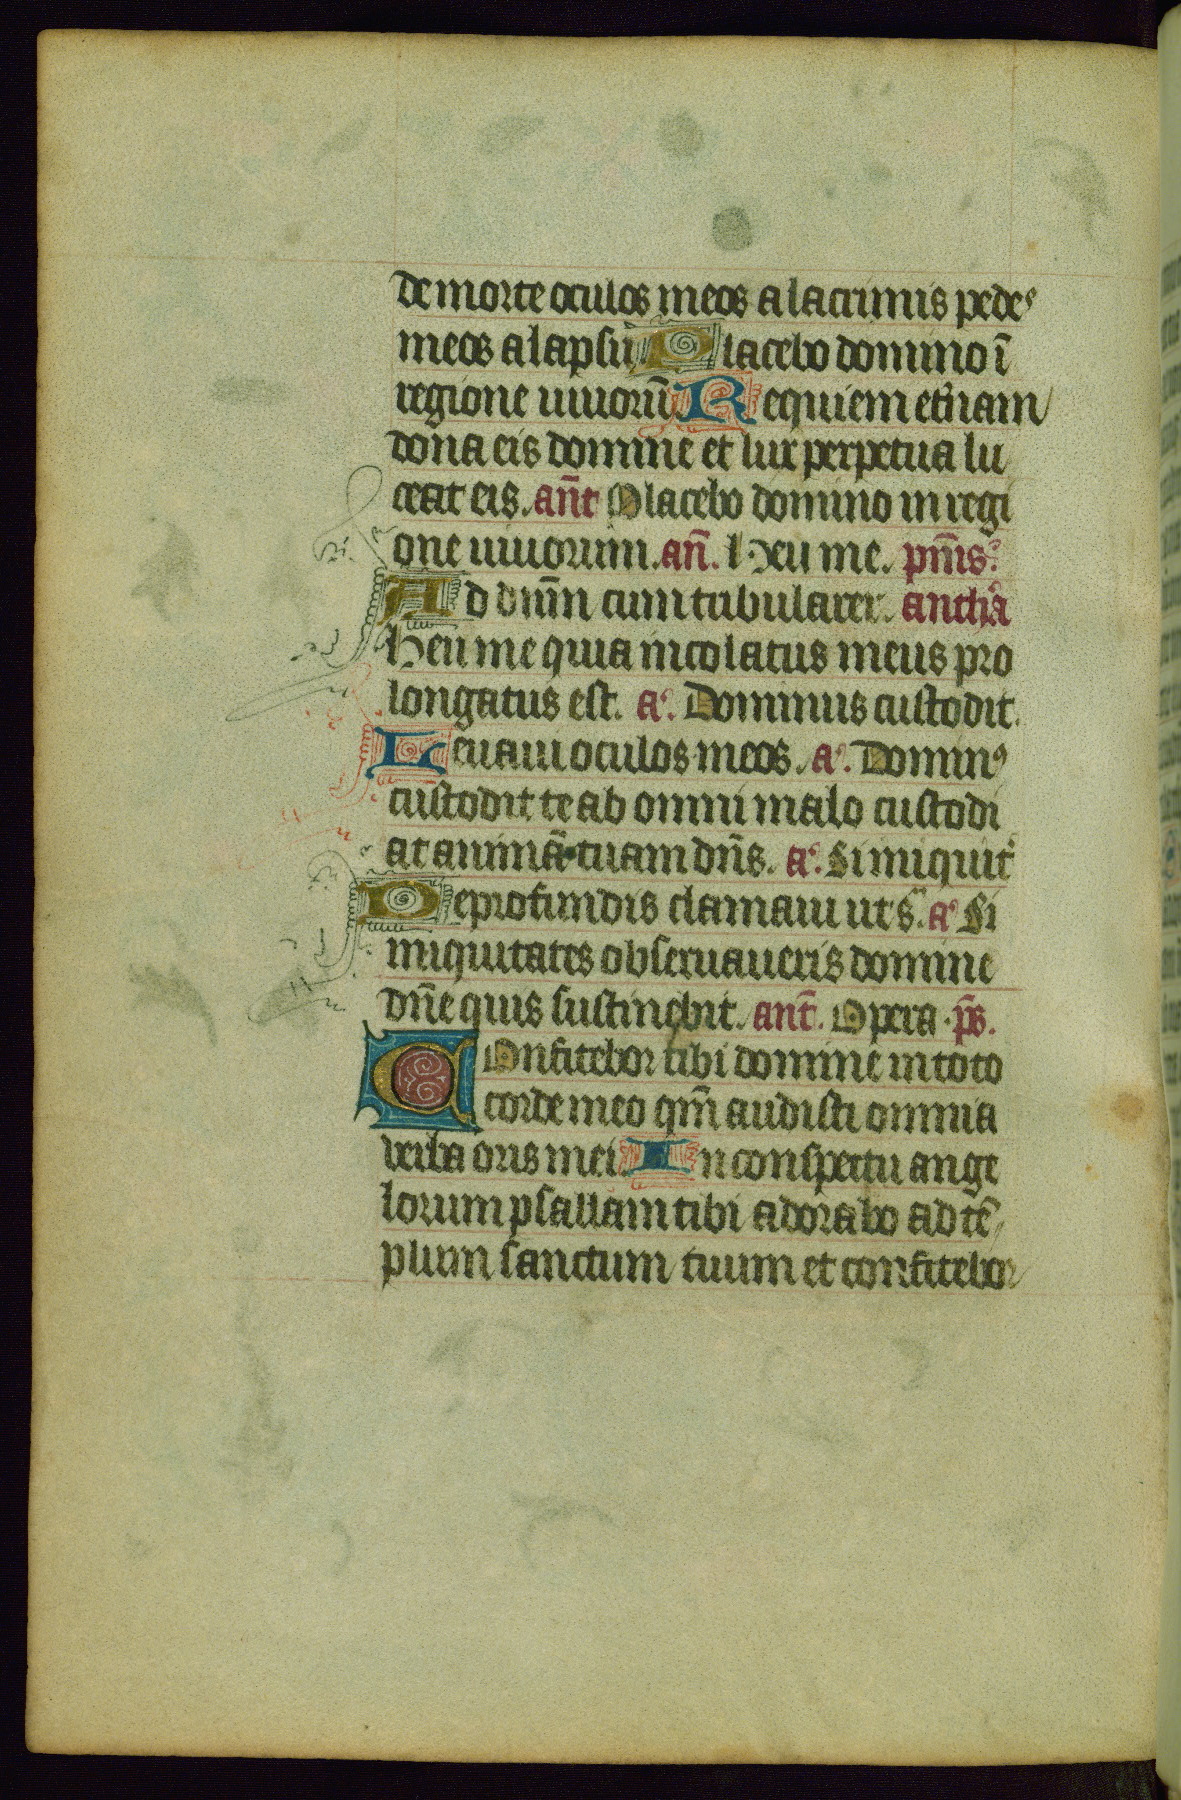 de morte oculos meos a lacrimis pedeꝰ
meos a lapsu. Placebo domino ī
regione uiuorū. Requiem et̄nam
dona eis domine et lux perpetua lu
ceat eis. an̄t Placebo domino in regi
one uiuorum. an̄. Heu me. pm̄is.
Ad dn̄m cum tribularer. anthā
Heu me quia incolatus meus pro
longatus est. aͦ. Dominus custodit.
Leuaui oculos meos. aͦ. Dominꝰ
custodit te ab omni malo custodi
at animā tuam dn̄s. aͦ. Si iniquit
De profundis clamaui ut sͣ. aͦ Si
iniquitates obseruaueris domine
dn̄e quis sustinebit. ant̄. Opera. ps̄.
Confitebor tibi domine in toto
corde meo qm̄ audisti omnia
verba oris mei. In conspectu ange
lorum psallam tibi adorabo ad tē
plum sanctum tuum et confitebor